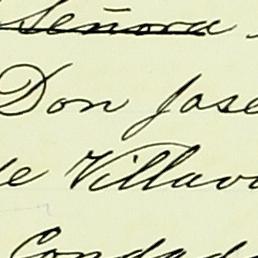 Señora
Don Jose
de Villavi
Condad